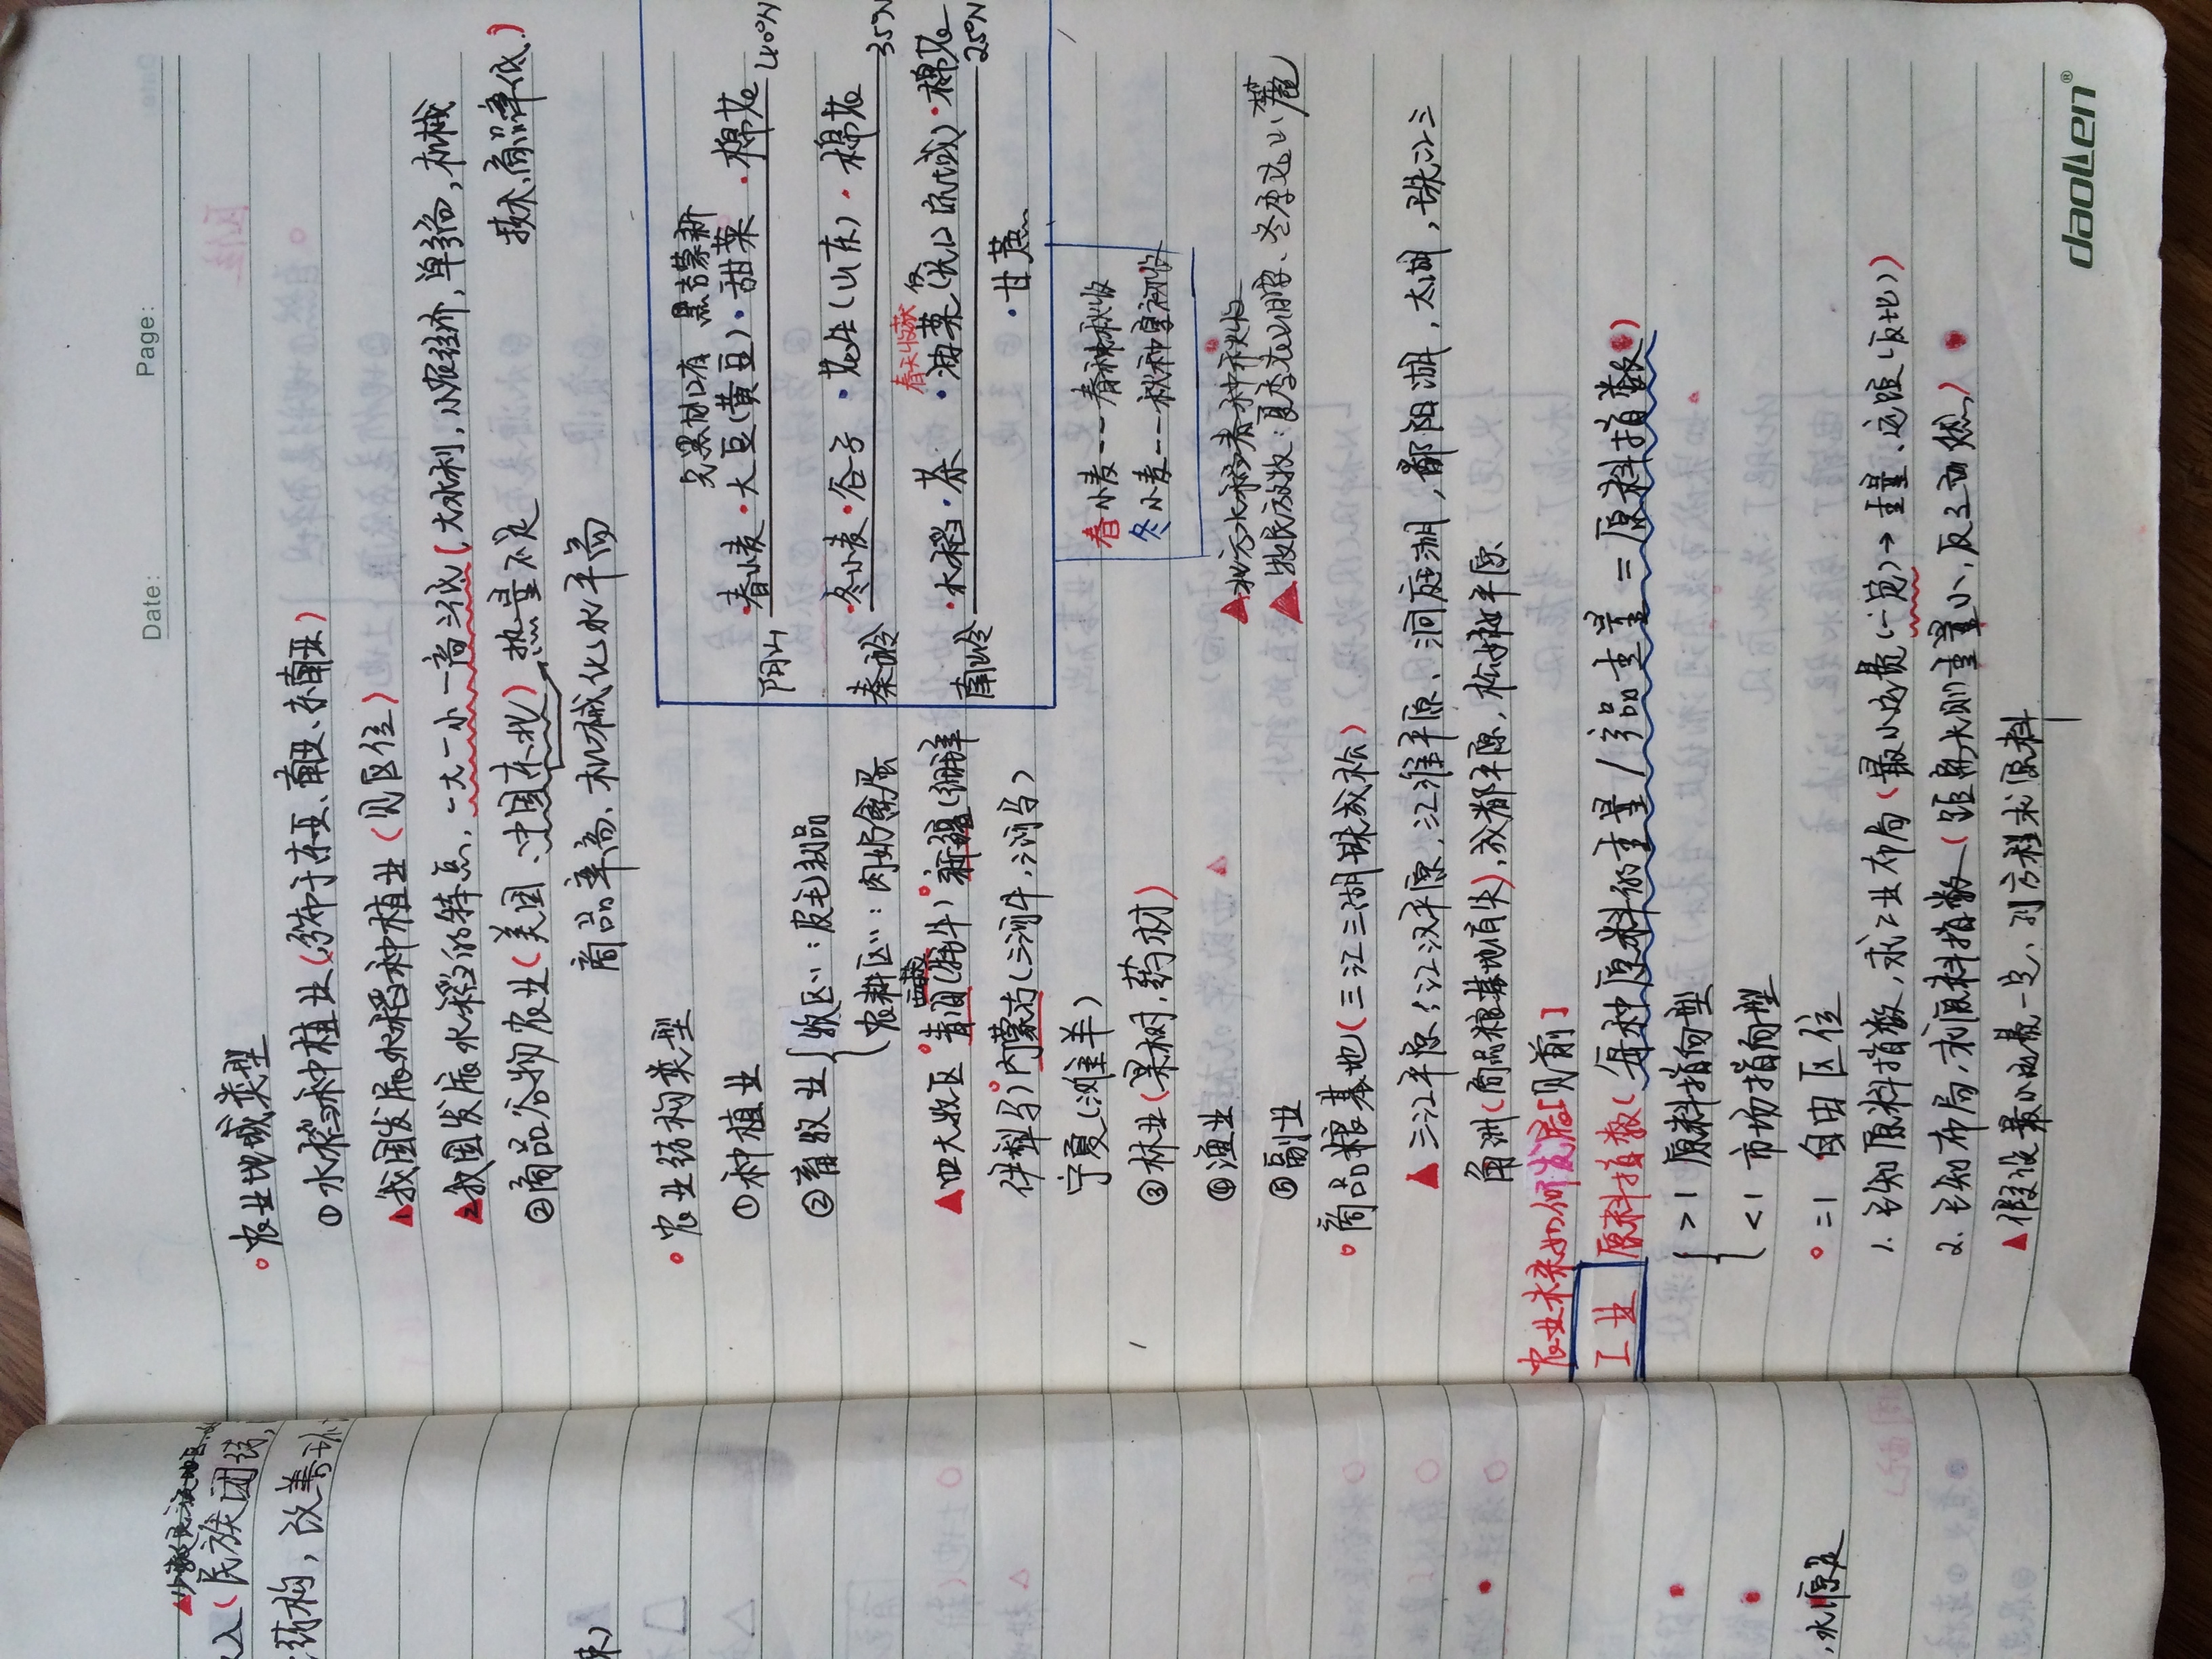 Date: Page:
入(民族团结,
结构,改善环
水源足
农业地域类型
①水稻种植业(分布于东亚、南亚、东南亚)
▲1我国发展水稻种植业(见区位)
▲2我国发展水稻的特点,一大一小一高三低(大水利,小农经济,单产高,机械
技术,商品率低)
②商品谷物农业(美国、中国东北)→热量不足
商品率高、机械化水平高
农业结构类型
①种植业
②畜牧业
牧区〃:皮毛制品
农耕区〃:肉奶禽蛋
西藏
▲四大牧区 青海(牦牛) 新疆(细羊
伊犁马)内蒙古(三河牛,三河马)
宁夏(滩羊)
③林业(果树,药材)
④渔业
⑤副业
只有 黑吉蒙新
阴山 ·春小麦·大豆(黄豆)·甜菜 ·棉花 40°N
秦岭 ·冬小麦·谷子 ·花生(山东)·棉花 35°N
春天收获
南岭 ·水稻·茶 ·油菜(长江流域)·棉花 25°N
·甘蔗
春小麦--春种秋收
冬小麦--秋种夏初收
▲北方水稻春种秋收
▲牧民放牧:夏季在山腰、冬季在山麓
商品粮基地(三江三湖珠成松)
▲三江平原,江汉平原,江淮平原、洞庭湖,鄱阳湖,太湖,珠江三
角洲(商品粮基地有失),成都平原,松嫩平原
农业未来如何发展[见前]
工业 原料指数(每种原料的重量/产品重量=原料指数)
>1 原料指向型
<1 市场指向型
=1 自由区位
1.已知原料指数,求工业布局(最小运费(一定)→重量、运距(反比))
2.已知布局,求原料指数(距离大则重量小,反之亦然)
▲假设最小运费一定、列方程求原料
daolen®